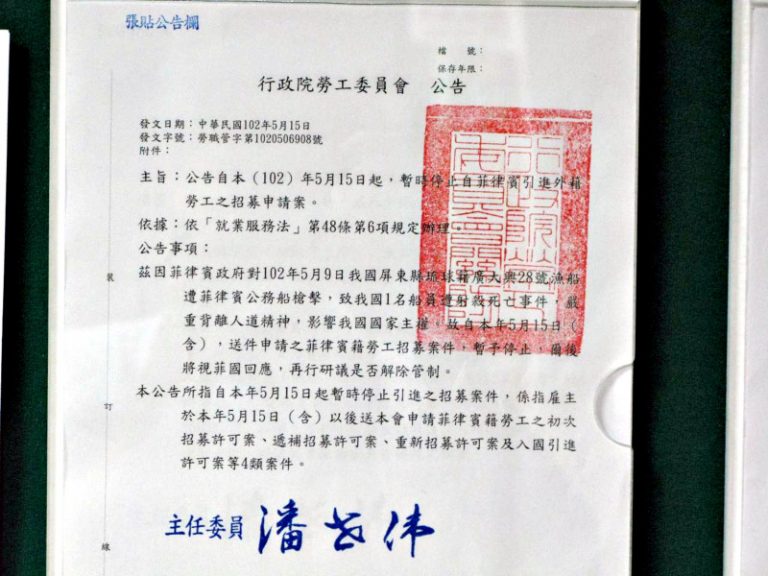 張貼公告欄
檔　號：
保存年限：
行政院勞工委員會　公告
發文日期：中華民國102年5月15日
發文字號：勞職管字第1020506908號
附件：
主旨：公告自本（102）年5月15日起，暫時停止自菲律賓引進外籍
勞工之招募申請案。
依據：依「就業服務法」第48條第6項規定辦理。
公告事項：
茲因菲律賓政府對102年5月9日我國屏東縣琉球籍廣大興28號漁船
遭菲律賓公務船槍擊，致我國1名船員遭射殺死亡事件，嚴
重背離人道精神，影響我國國家主權。故自本年5月15日（
含），送件申請之菲律賓籍勞工招募案件，暫予停止，爾後
將視菲國回應，再行研議是否解除管制。
本公告所指自本年5月15日起暫時停止引進之招募案件，係指雇主
於本年5月15日（含）以後送本會申請菲律賓籍勞工之初次
招募許可案、遞補招募許可案、重新招募許可案及入國引進
許可案等4類案件。
主任委員 潘世偉
裝
訂
線